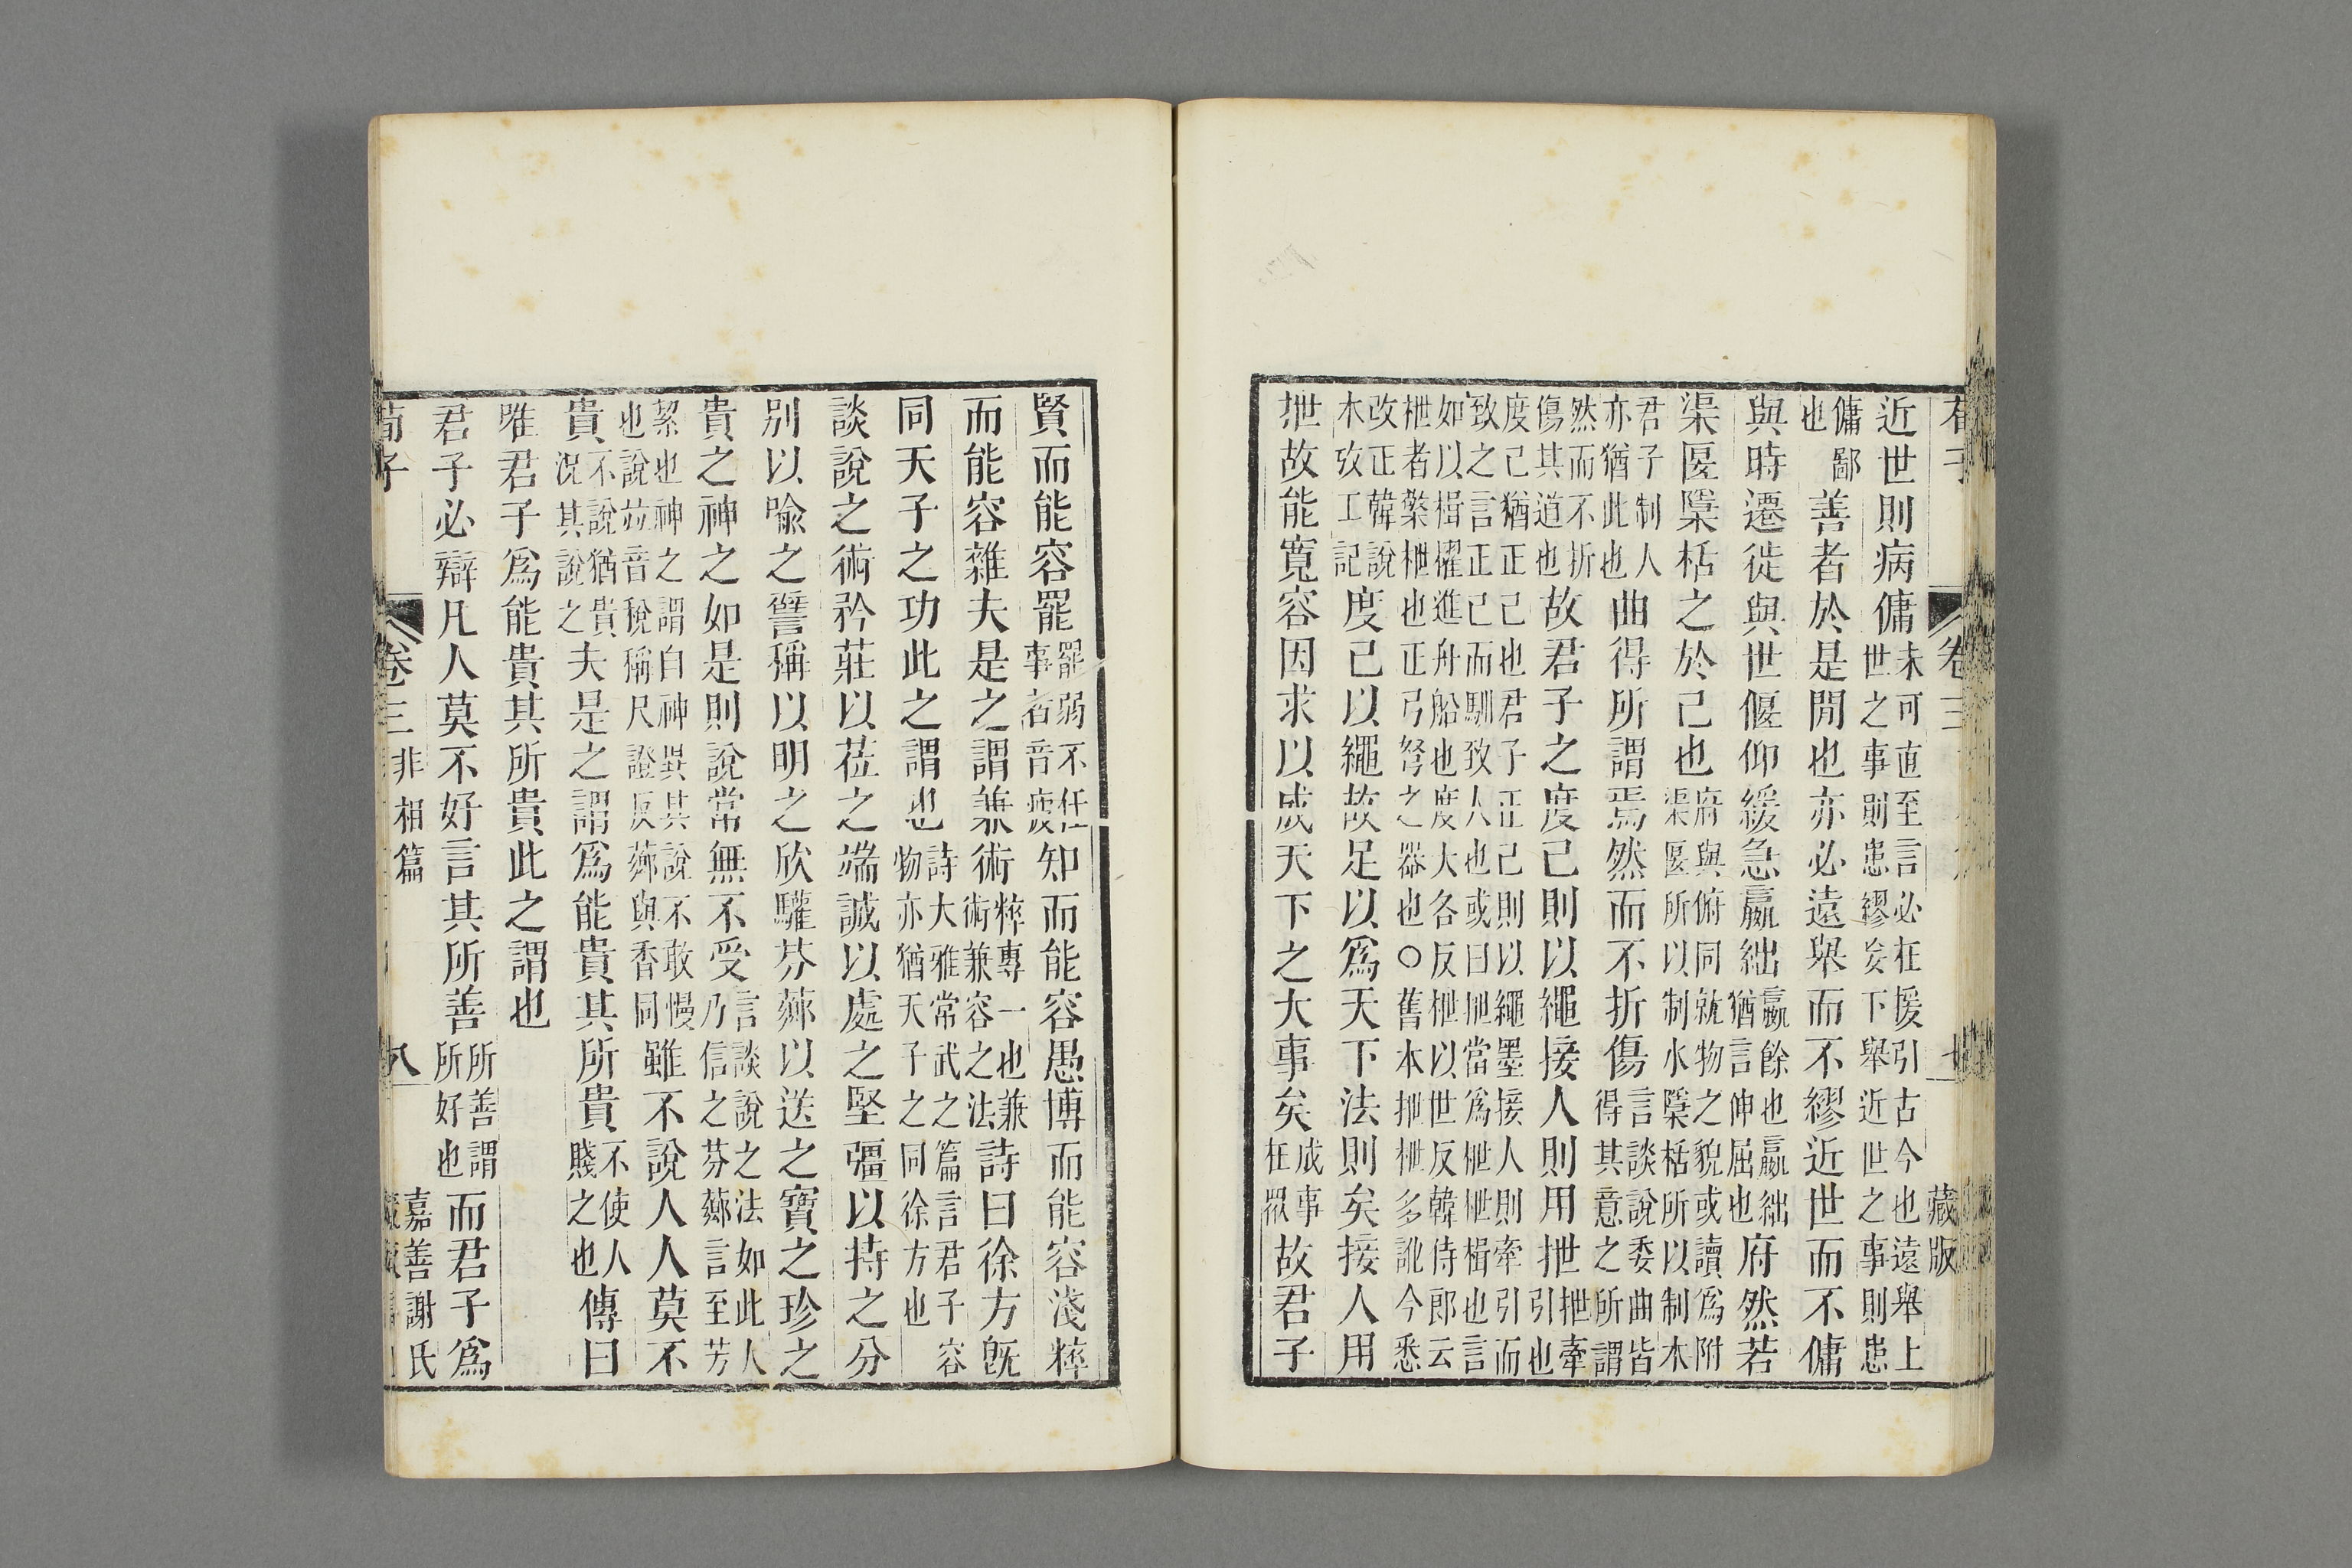 卷三 藏版
近世則病傭未可直至言必在援引古今也遠舉上世之事則患繆妄下舉近世之事則患
傭鄙也善者於是閒也亦必遠舉而不繆近世而不傭
與時遷徙與世偃仰緩急嬴絀嬴餘也嬴絀猶言伸屈也府然若
渠匽檃栝之於己也府與俯同就物之貌或讀爲附渠匽所以制水檃栝所以制木
君子制人亦猶此也曲得所謂焉然而不折傷言談說委曲皆得其意之所謂
然而不折傷其道也故君子之度己則以繩接人則用抴抴牽引也
度己猶正己也君子正己則以繩墨接人則牽引而致之言正己而馴致人也或曰抴當爲枻枻楫也言
如以楫擢進舟船也度大各反枻以世反韓侍郎云枻者檠枻也正弓弩之器也○舊本抴枻多訛今悉
改正韓說木攷工記度己以繩故足以爲天下法則矣接人用
抴故能寬容因求以成天下之大事矣成事在眾故君子
賢而能容罷罷弱不任事者音疲知而能容愚博而能容淺粹
而能容雜夫是之謂兼術粹專一也兼術兼容之法詩曰徐方既
同天子之功此之謂也詩大雅常武之篇言君子容物亦猶天子之同徐方也
談說之術矜莊以莅之端誠以處之堅彊以持之分
別以喻之譬稱以明之欣驩芬薌以送之寶之珍之
貴之神之如是則說常無不受言談說之法如此人乃信之芬薌言至芳
絜也神之謂自神異其說不敢慢也說竝音稅稱尺證反薌與香同雖不說人人莫不
貴不說猶貴況其說之夫是之謂爲能貴其所貴不使人賤之也傳曰
唯君子爲能貴其所貴此之謂也
君子必辯凡人莫不好言其所善所善謂所好也而君子爲
荀子 卷三 非相篇 八 嘉善謝氏